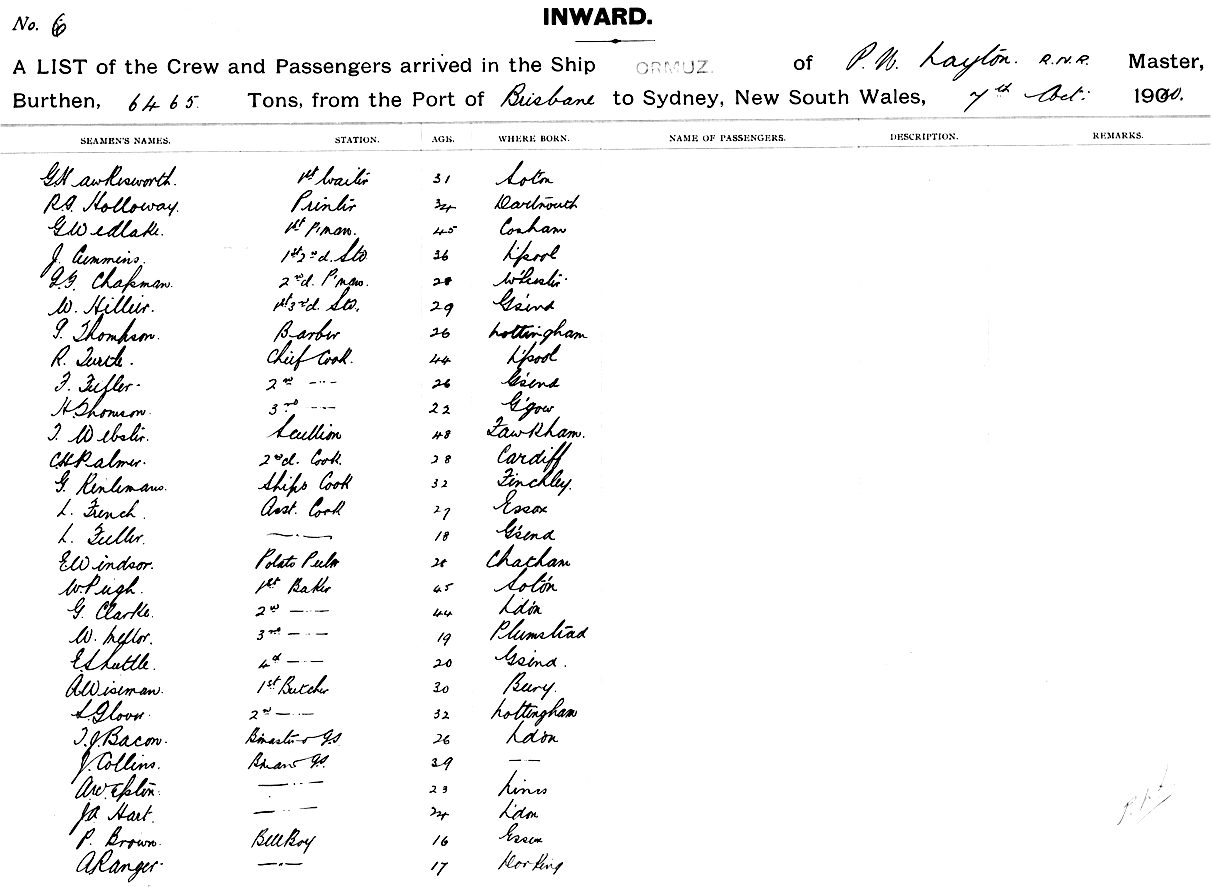 No. 6
INWARD.
A LIST of the Crew and Passengers arrived in the Ship ORMUZ. of P. W. Layton. R.N.R. Master,
Burthen, 6465. Tons, from the Port of Brisbane to Sydney, New South Wales, 7th Oct: 1900.
SEAMEN'S NAMES. STATION. AGE. WHERE BORN. NAME OF PASSENGERS. DESCRIPTION. REMARKS.
G Hawkesworth. 1st Waiter 31 Soton
Holloway. Printer 34 Dartmouth
G Wedlake. 1st P'man. 45
J. Cummins. 1st 2nd. Std. 36 L'pool
Chapman. 2nd. P'man. 28
W. Hillier. 1st 3rd. Std. 29 G'send
Thompson. Barber 26 Nottingham
R. Turtle. Chief Cook. 44 L'pool
F. 2nd -·- 26 G'send
H. Thomson. 3rd -·- 22 G'gow
T. Webster. Scullion 48 Fawkham.
CH Palmer. 2nd. Cook. 28 Cardiff
G. Ships Cook 32 Finchley.
L. French. Asst. Cook 27 Essex
L. Fuller. -·- 18 G'send
E Windsor. Potato Peeler 28 Chatham
W. Pugh. 1st Baker 45 Soton
G. Clarke. 2nd -·- 44 L'don
W. Mellor. 3rd -·- 19 Plumstead
E Shuttle. 4th -·- 20 G'send.
A Wiseman. 1st Butcher 30 Bury.
S Glover. 2nd -·- 32 Nottingham
T. J. Bacon. 26 L'don
J. Collins. 39 --
-·- 23
JA Hart. -·- 24 L'don
P. Brown. Bell Boy 16 Essex
A Ranger. -·- 17 Dorking